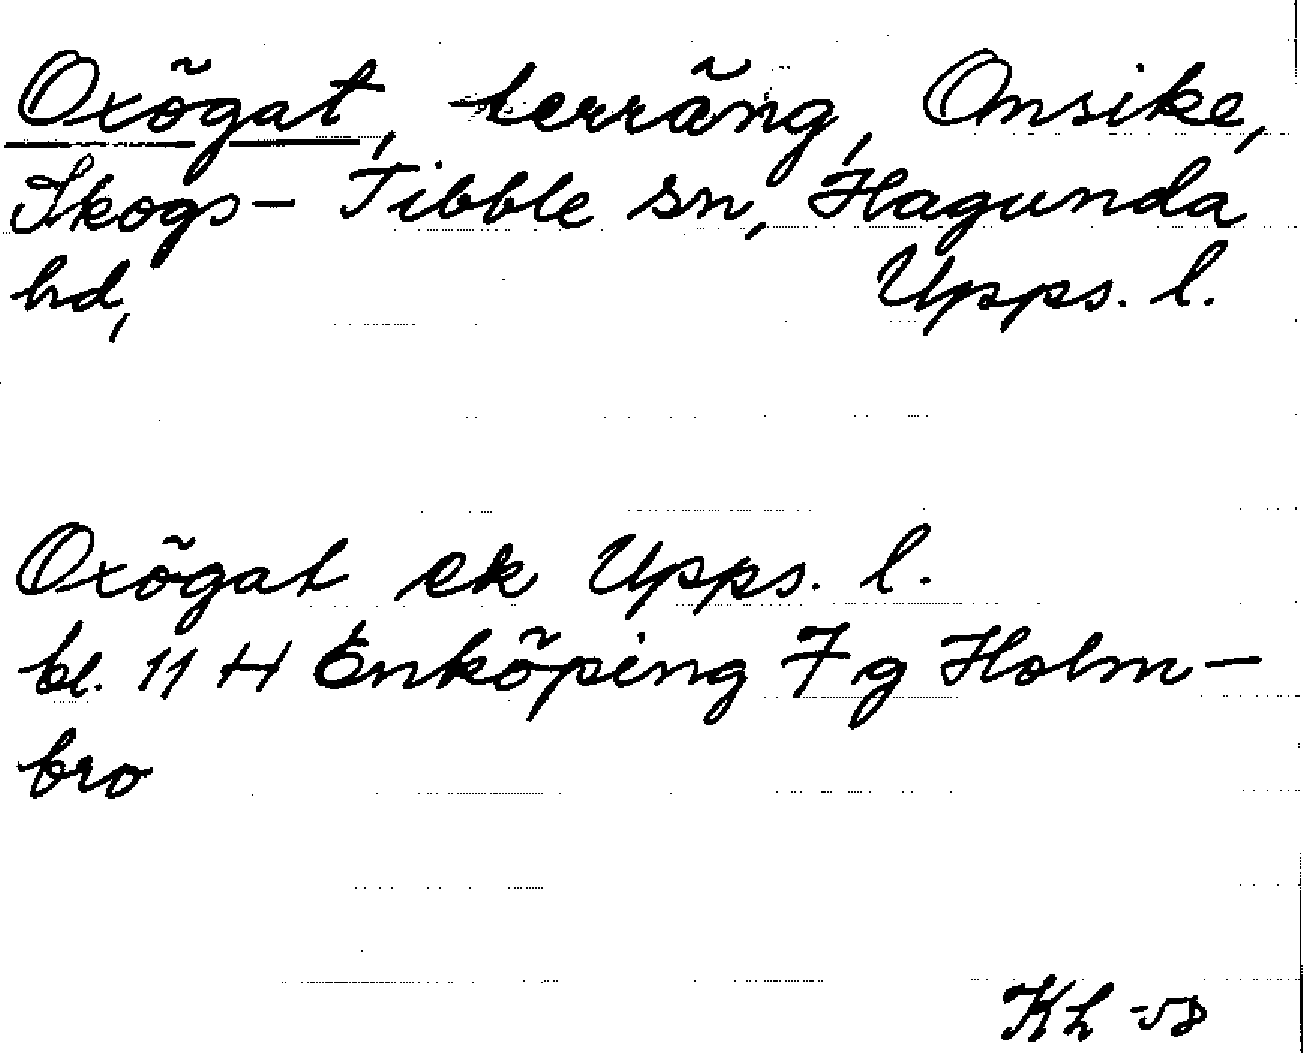 Oxögat, terräng, Onsike,
Skogs-Tibble sn, Hagunda
hd, Upps. l.
Oxögat ek Upps. l.
bl. 11 H Enköping 7 g Holm-
bro
Kh -58